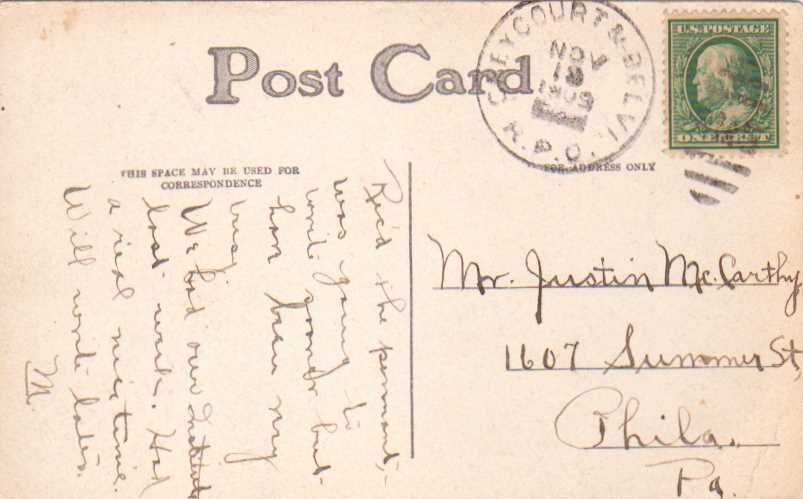 Post Card
GREYCOURT & BELVI.
NOV
18
1909
R.P.O.
U.S. POSTAGE
ONE CENT
THIS SPACE MAY BE USED FOR
CORRESPONDENCE
FOR ADDRESS ONLY
Rec'd the pennant,-
was going to
write sooner but
have been very
busy.
We had our Institute
last week. Had
a real nice time.
Will write later.
M.
Mr. Justin McCarthy
1607 Summer St,
Phila.
Pa.